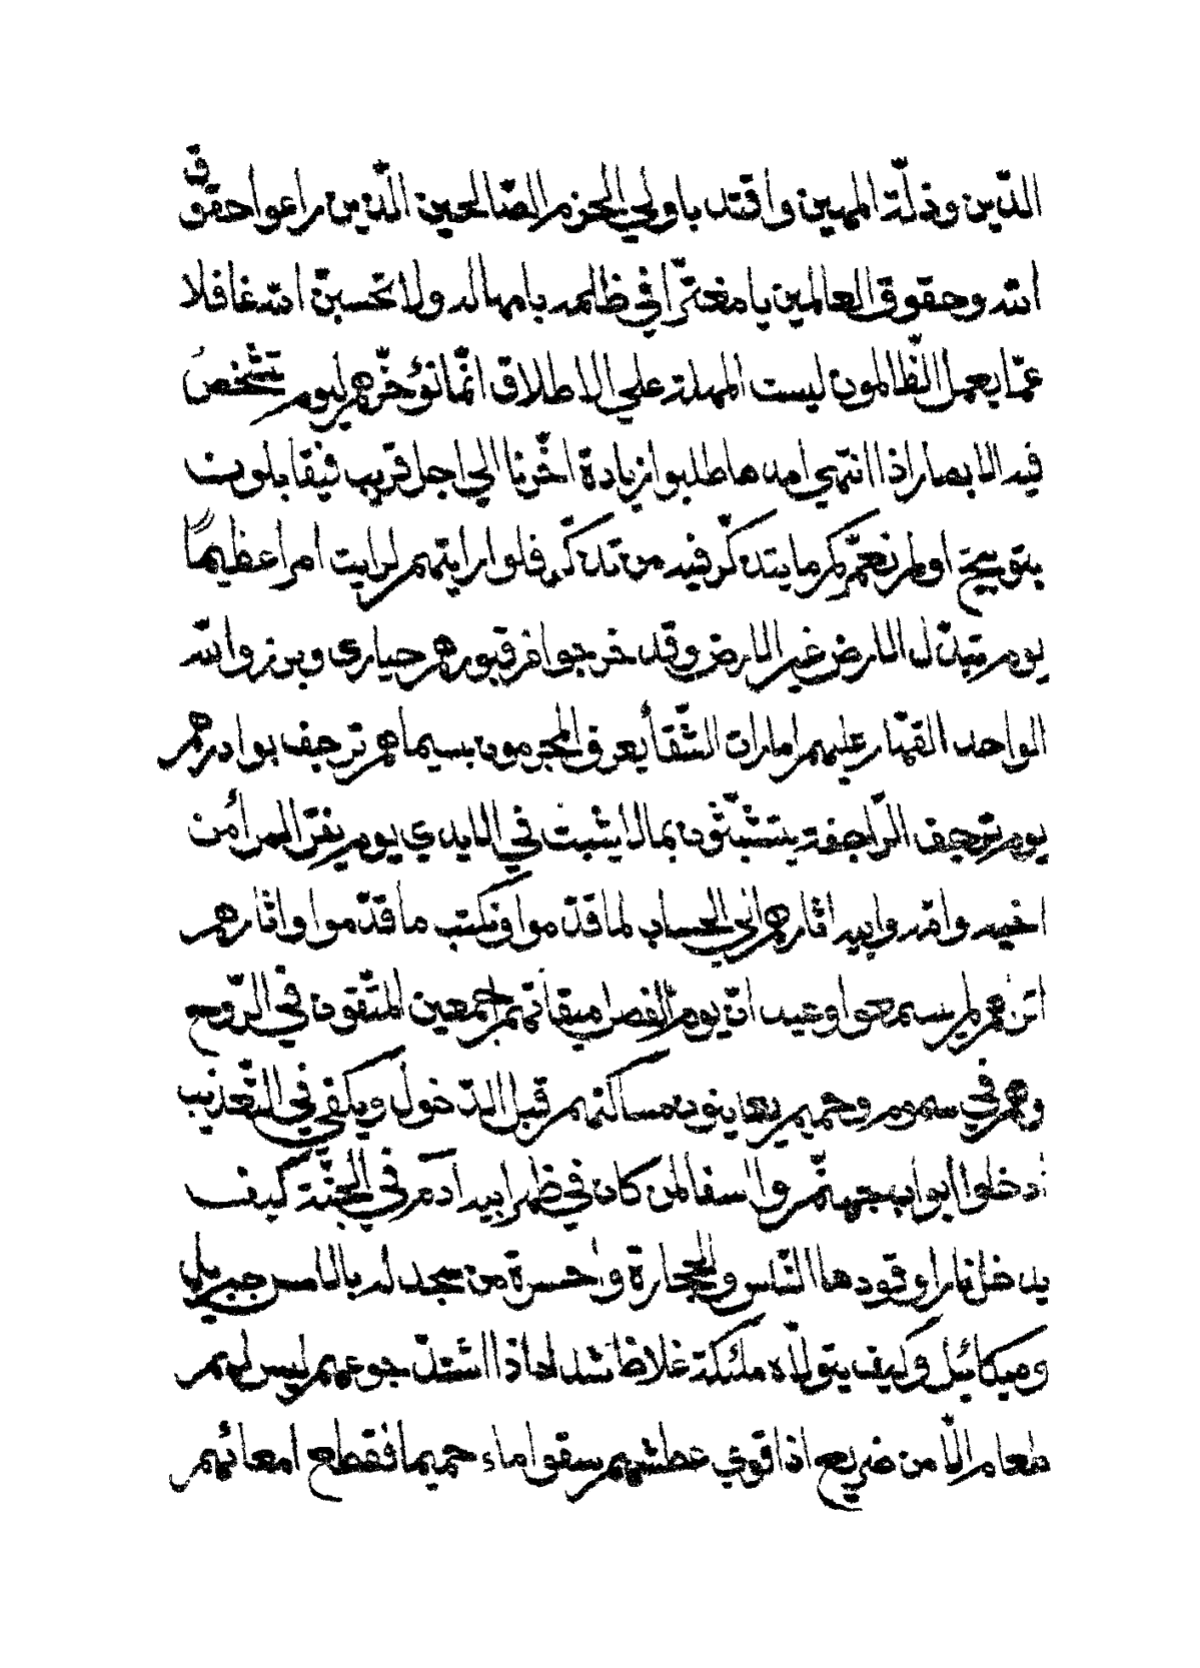 الدّين وذلّة المهين واقتد باولي الحزم الصّالحين الّذين راعوا حقوق
الله وحقوق العالمين يا مغترّا في ظلمه بامهاله ولا تحسبنّ الله غافلا
عمّا يعمل الظّالمون ليست المهلة علي الاطلاق انّما نؤخّرهم ليوم تشخص
فيه الابصار اذا انتهي امدها طلبوا زيادة اخّرنا الي اجل قريب فيقابلون
بتوبيخ اولم نعمّركم ما يتذكّر فيه من تذكّر فلو رايتهم لرايت امرا عظيما
يوم تبدّل الارض غير الارض وقد خرجوا من قبورهم حيارى وبرزوا لله
الواحد القهّار عليهم امارات الشّقأ يعرف المجرمون بسيماهم ترجف بوادرهم
يوم ترجف الرّاجفة يتشبّثون بما لا يثبت في الايدي يوم يفرّ المرأ من
اخيه وامّه وابيه اثارهم الي الحساب لما قدّموا ونكتب ما قدّموا واثارهم
اتراهم لم يسمعوا وعيد انّ يوم الفصل ميقاتهم اجمعين المتّقون في الرّوح
وهم في سموم وحميم يعاينون مساكنهم قبل الدّخول ويكفي في التّعذيب
أدخلوا ابواب جهنّم وا اسفا لمن كان في ظهر ابيه آدم في الجنّة كيف
يدخل نارا وقودها النّاس والحجارة وا حسرة من سجد له بالامس جبريل
وميكائيل وكيف يتولّاه ملئكة غلاظ شداد اذا اشتدّ جوعهم ليس لهم
طعام الّا من ضريع اذا قوي عطشهم سقوا ماء حميما فقطع امعائهم